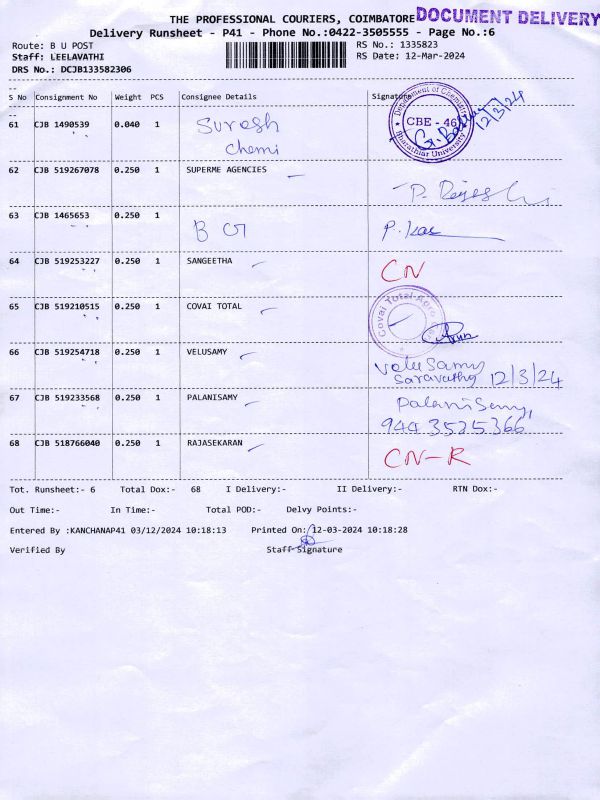 THE PROFESSIONAL COURIERS, COIMBATORE DOCUMENT DELIVERY
Delivery Runsheet - P41 - Phone No.:0422-3505555 - Page No.:6
Route: B U POST RS No.: 1335823
Staff: LEELAVATHI RS Date: 12-Mar-2024
DRS No.: DCJB133582306
S No Consignment No Weight PCS Consignee Details Signature
61 CJB 1490539 0.040 1 Suresh
chemi
Department of Chemistry
CBE - 46
Bharathiar University
12/3/24
62 CJB 519267078 0.250 1 SUPERME AGENCIES
63 CJB 1465653 0.250 1
64 CJB 519253227 0.250 1 SANGEETHA CN
65 CJB 519210515 0.250 1 COVAI TOTAL
Covai Total Agro
66 CJB 519254718 0.250 1 VELUSAMY Velusamy
12/3/24
67 CJB 519233568 0.250 1 PALANISAMY Palanisamy,
944 3525366
68 CJB 518766040 0.250 1 RAJASEKARAN CN-R
Tot. Runsheet:- 6 Total Dox:- 68 I Delivery:- II Delivery:- RTN Dox:-
Out Time:- In Time:- Total POD:- Delvy Points:-
Entered By :KANCHANAP41 03/12/2024 10:18:13 Printed On:/12-03-2024 10:18:28
Verified By Staff Signature